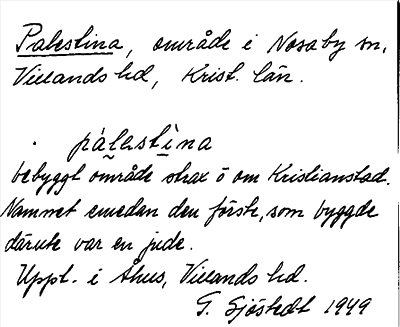 Palestina, område i Nosaby sn,
Villands hd, Krist. län.
pálastìna
bebyggt område strax ö om Kristianstad.
Namnet emedan den förste, som byggde
därute var en jude.
Uppt. i Åhus, Villands hd.
G. Sjöstedt 1949